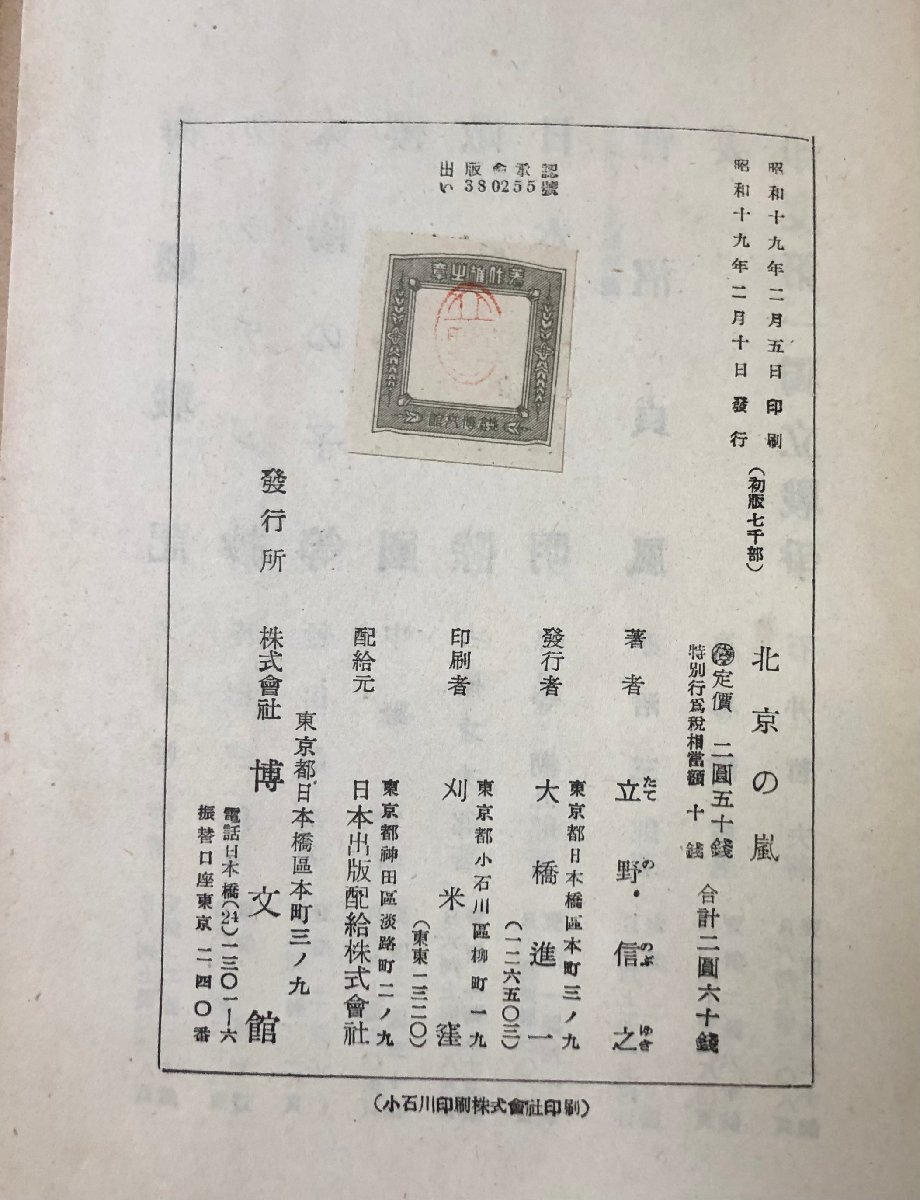 出版會承認
い380255號
昭和十九年二月五日印刷
昭和十九年二月十日發行
(初版七千部)
北京の嵐
定價 二圓五十錢
特別行爲税相當額 十錢
合計二圓六十錢
著者 立野・信之
たて の のぶ ゆき
東京都日本橋區本町三ノ九
發行者 大橋進一
(一二六五〇三)
東京都小石川區柳町一九
印刷者 刈米窪
(東東一三二〇)
東京都神田區淡路町二ノ九
配給元 日本出版配給株式會社
東京都日本橋區本町三ノ九
發行所 株式會社 博文館
電話日本橋(24)一三〇一―六
振替口座東京 二四〇番
(小石川印刷株式會社印刷)